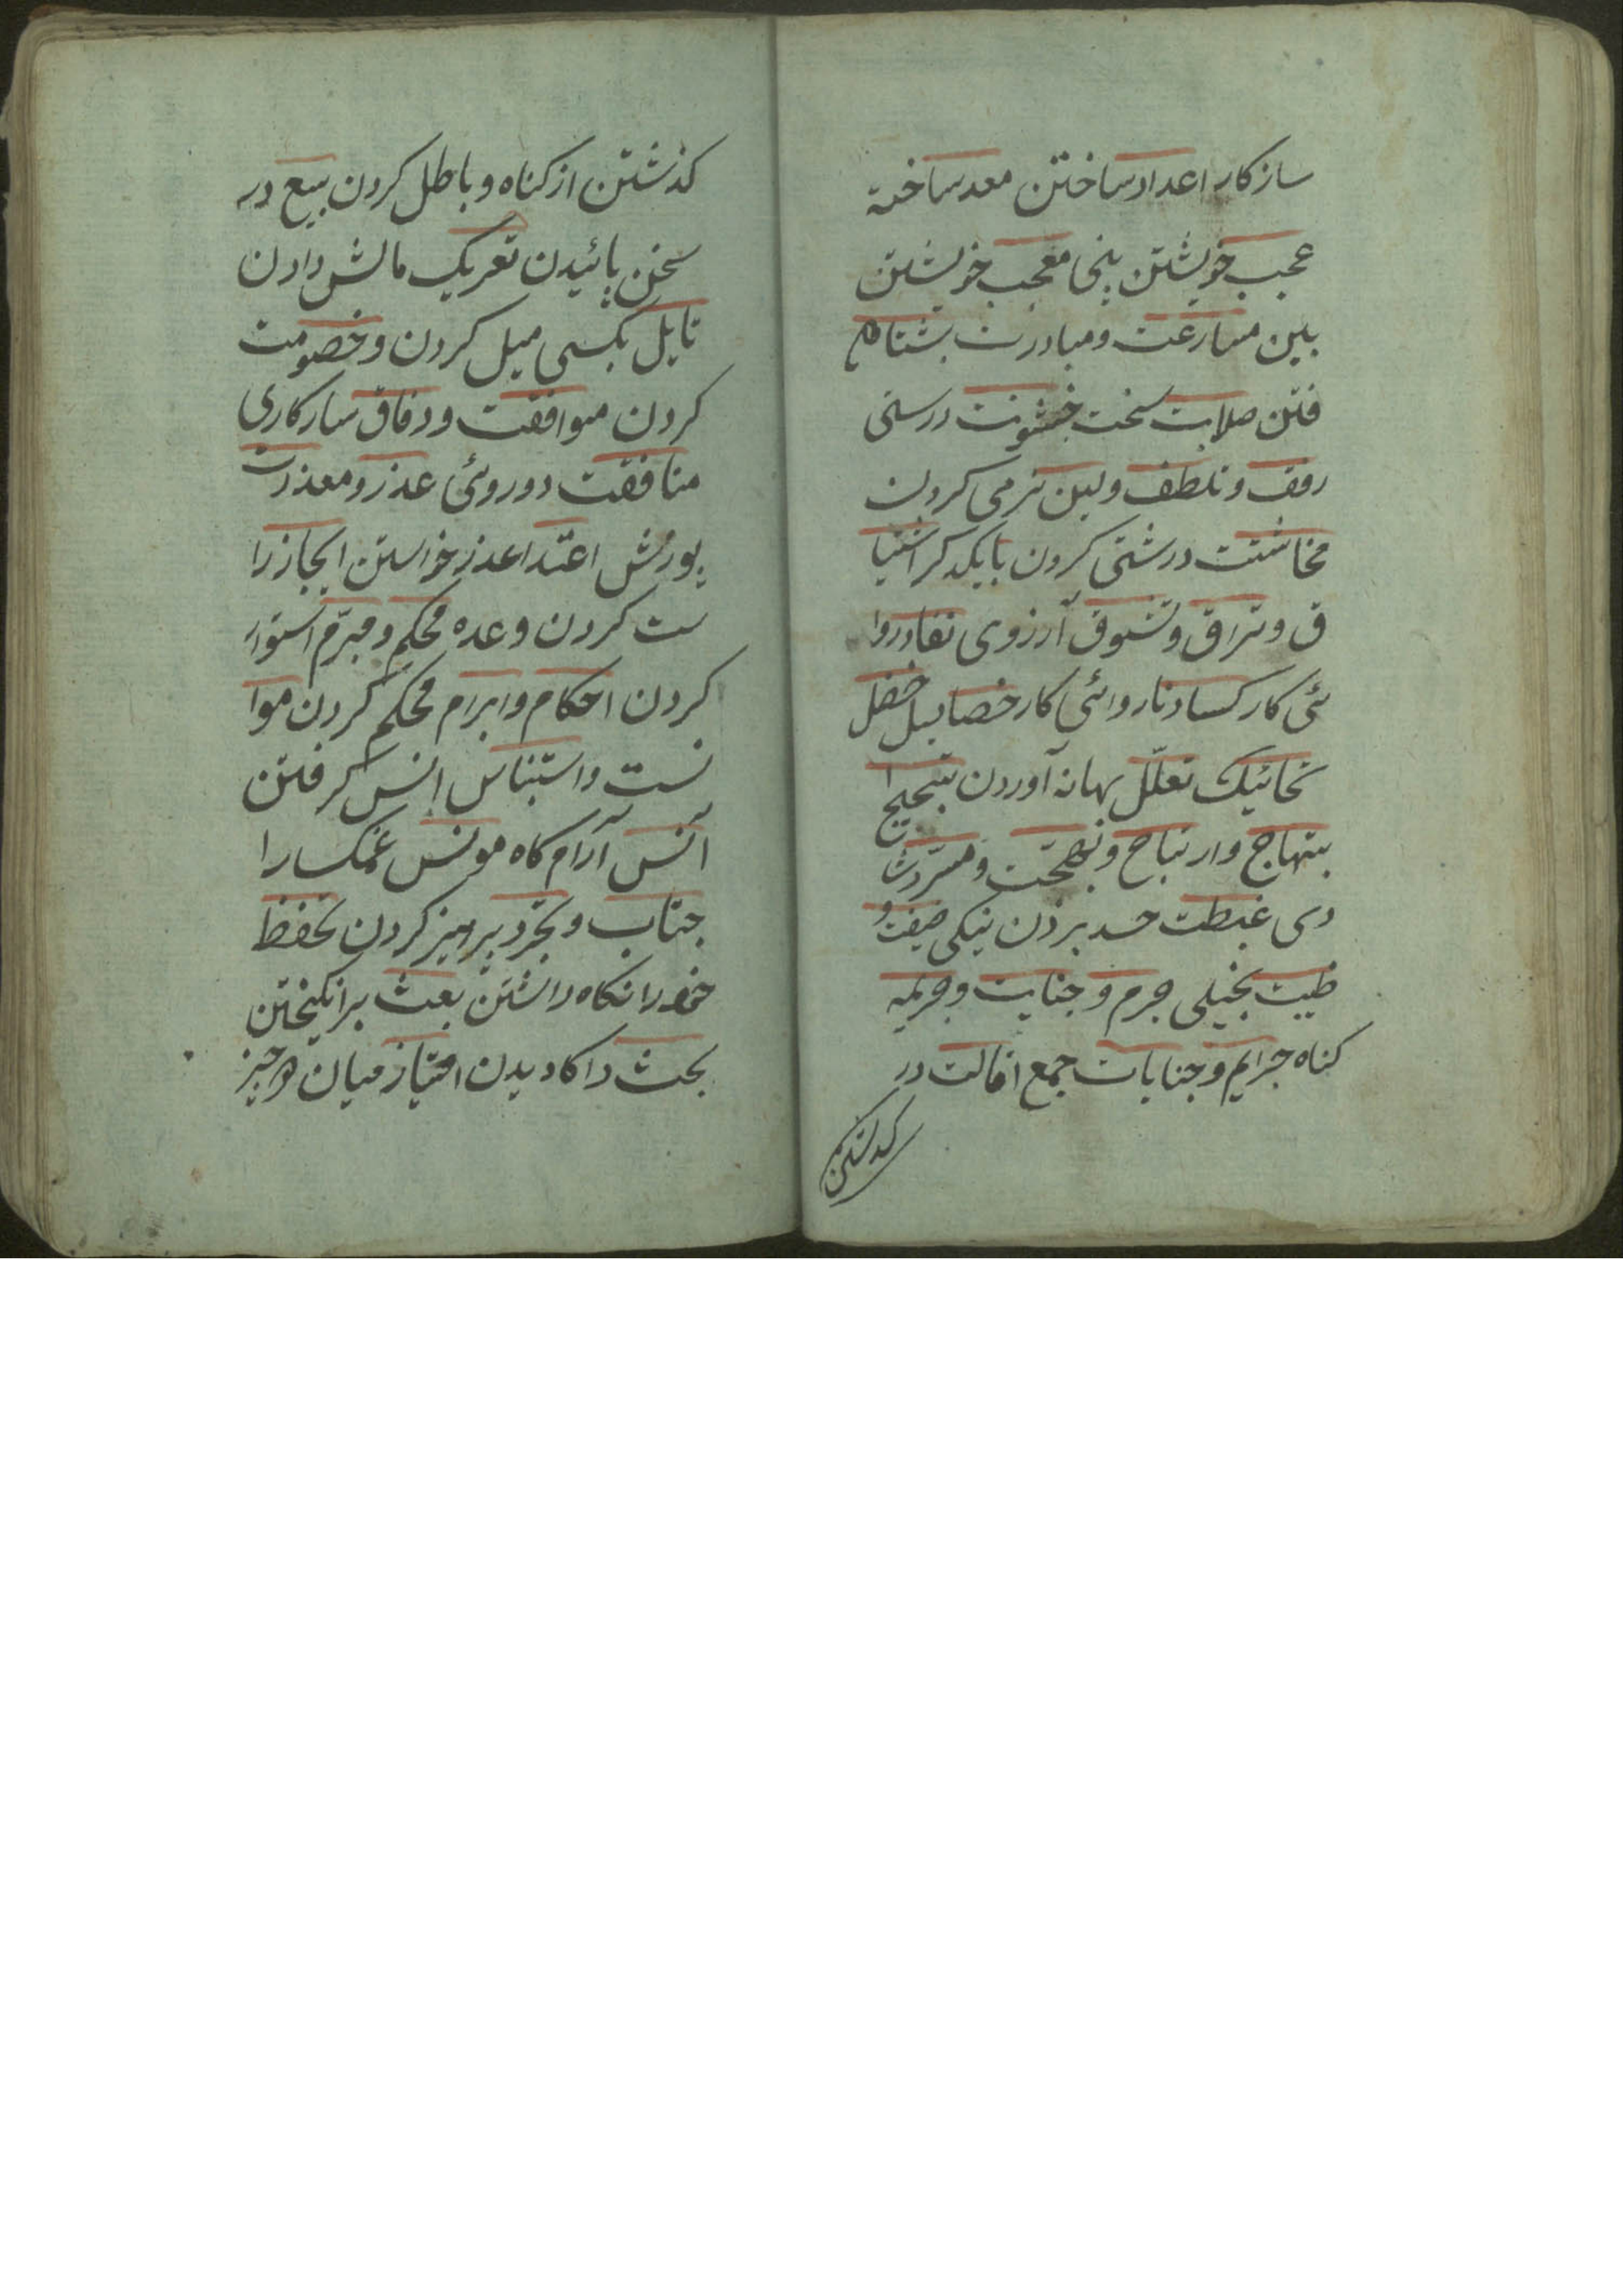 ساز کار اعداد ساختن معد ساخته
عجب خویشتن بینی معجب خویشتن
بین مسارعت ومبادرت بشتاب
فتن صلابت سخت خشونت درستی
رفق وتلطف ولین نرمی کردن
مخاشنت درشتی کردن بایکدکر اشتیا
ق وتراق وتشوق آرزوی نفاد روا
ئی کار کساد ناروائی کار خصایل خصل
تعلّل بهانه آوردن تبجیح ا
بتهاج وارتیاح وبهجت ومسرّت شا
دی غبطت حسد بردن نیکی
ظیت بخیلی جرم وجنایت وجریمه
کناه جرایم وجنایات جمع اقالت در
کدشتن
کذشتن از کناه وباطل کردن بیع در
سخن پائیدن تعریک مالش دادن
تایل بکسی میل کردن وخصومت
کردن موافقت ووفاق سازکاری
منافقت دوروئی عذر ومعذرت
پورش اعتذا عذر خواستن ایجاز را
ست کردن وعده محکم ومبرّم استوار
کردن احکام وابرام محکم کردن موا
نست واستیناس انس کرفتن
آنس آرام کاه مونس غمکسار ا
جتناب وتحرّز پرهیز کردن تحفظ
خودرا نکاه داشتن بعث برانکیختن
بحث واکاویدن امتیاز میان هر چیز